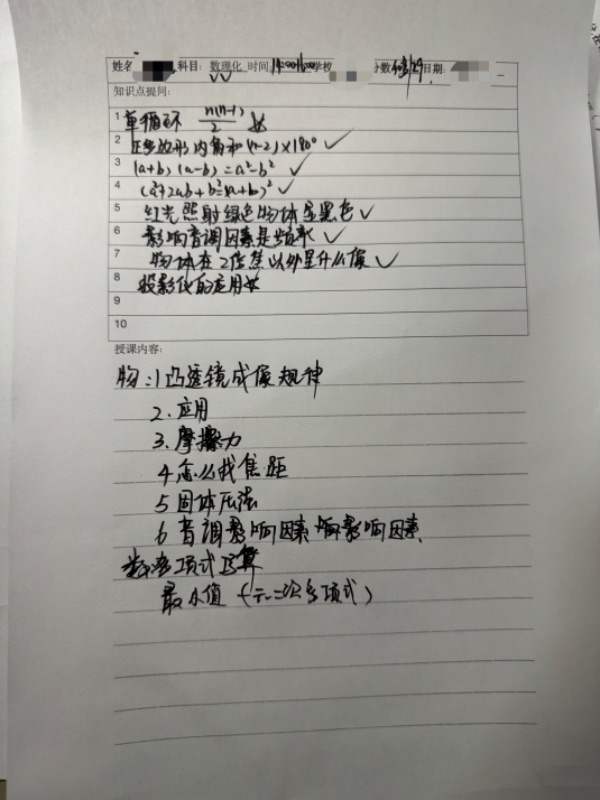 姓名 科目: 数理化 时间: 学校 分数 日期:
知识点提问:
1 单循环 n(n-1)/2
2 正多边形内角和(n-2)×180° ✓
3 (a+b)(a-b)=a²-b² ✓
4 (a²+2ab+b²=(a+b)² ✓
5 红光照射绿色物体呈黑色✓
6 影响音调因素是频率✓
7 物体在2倍焦以外呈什么像✓
8 投影仪的应用
9
10
授课内容:
物:1凸透镜成像规律
2.应用
3.摩擦力
4怎么找焦距
5固体压强
6音调影响因素 响影响因素
数 项式运算
最小值(二次多项式)